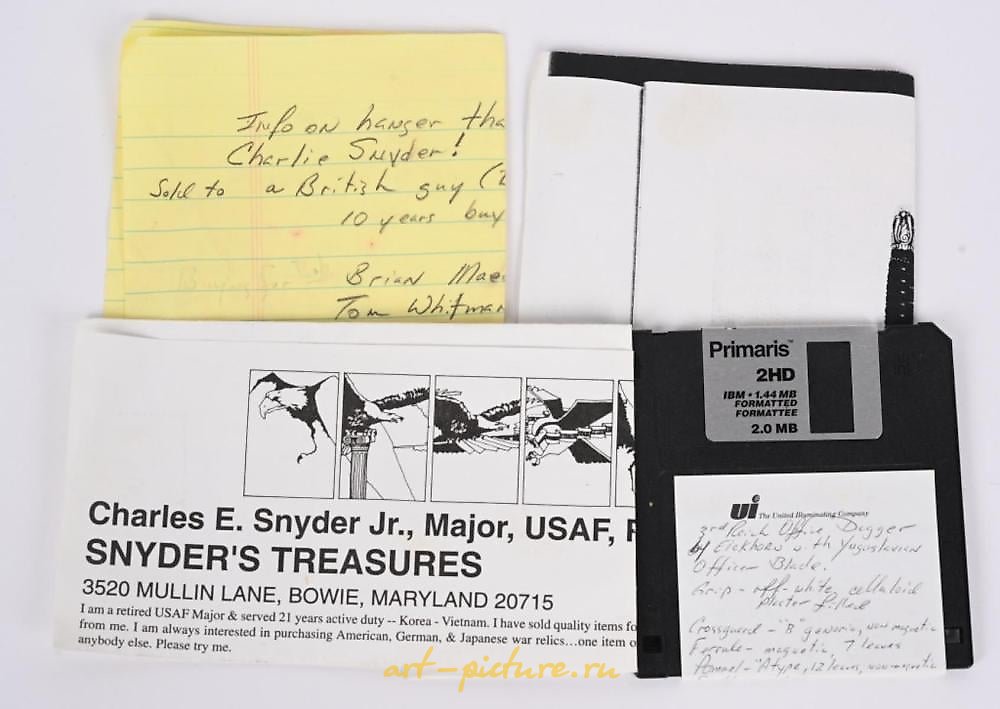 Info on hanger tha
Charlie Snyder!
Sold to a British guy (
10 years buy
Brian Mae
Tom Whitman
Charles E. Snyder Jr., Major, USAF, R
SNYDER'S TREASURES
3520 MULLIN LANE, BOWIE, MARYLAND 20715
I am a retired USAF Major & served 21 years active duty -- Korea - Vietnam. I have sold quality items fo
from me. I am always interested in purchasing American, German, & Japanese war relics...one item o
anybody else. Please try me.
Primaris™
2HD
IBM • 1.44 MB
FORMATTED
FORMATTEE
2.0 MB
ui The United Illuminating Company
3rd Reich Office Dagger
by Eickhorn with Yugoslavian
Officer Blade.
Grip - off-white celluloid
plaster filled
Crossguard - "B" generic, non magnetic
Ferrule - magnetic, 7 leaves
Pommel - "A type, 12 leaves, non-magnetic
art-picture.ru